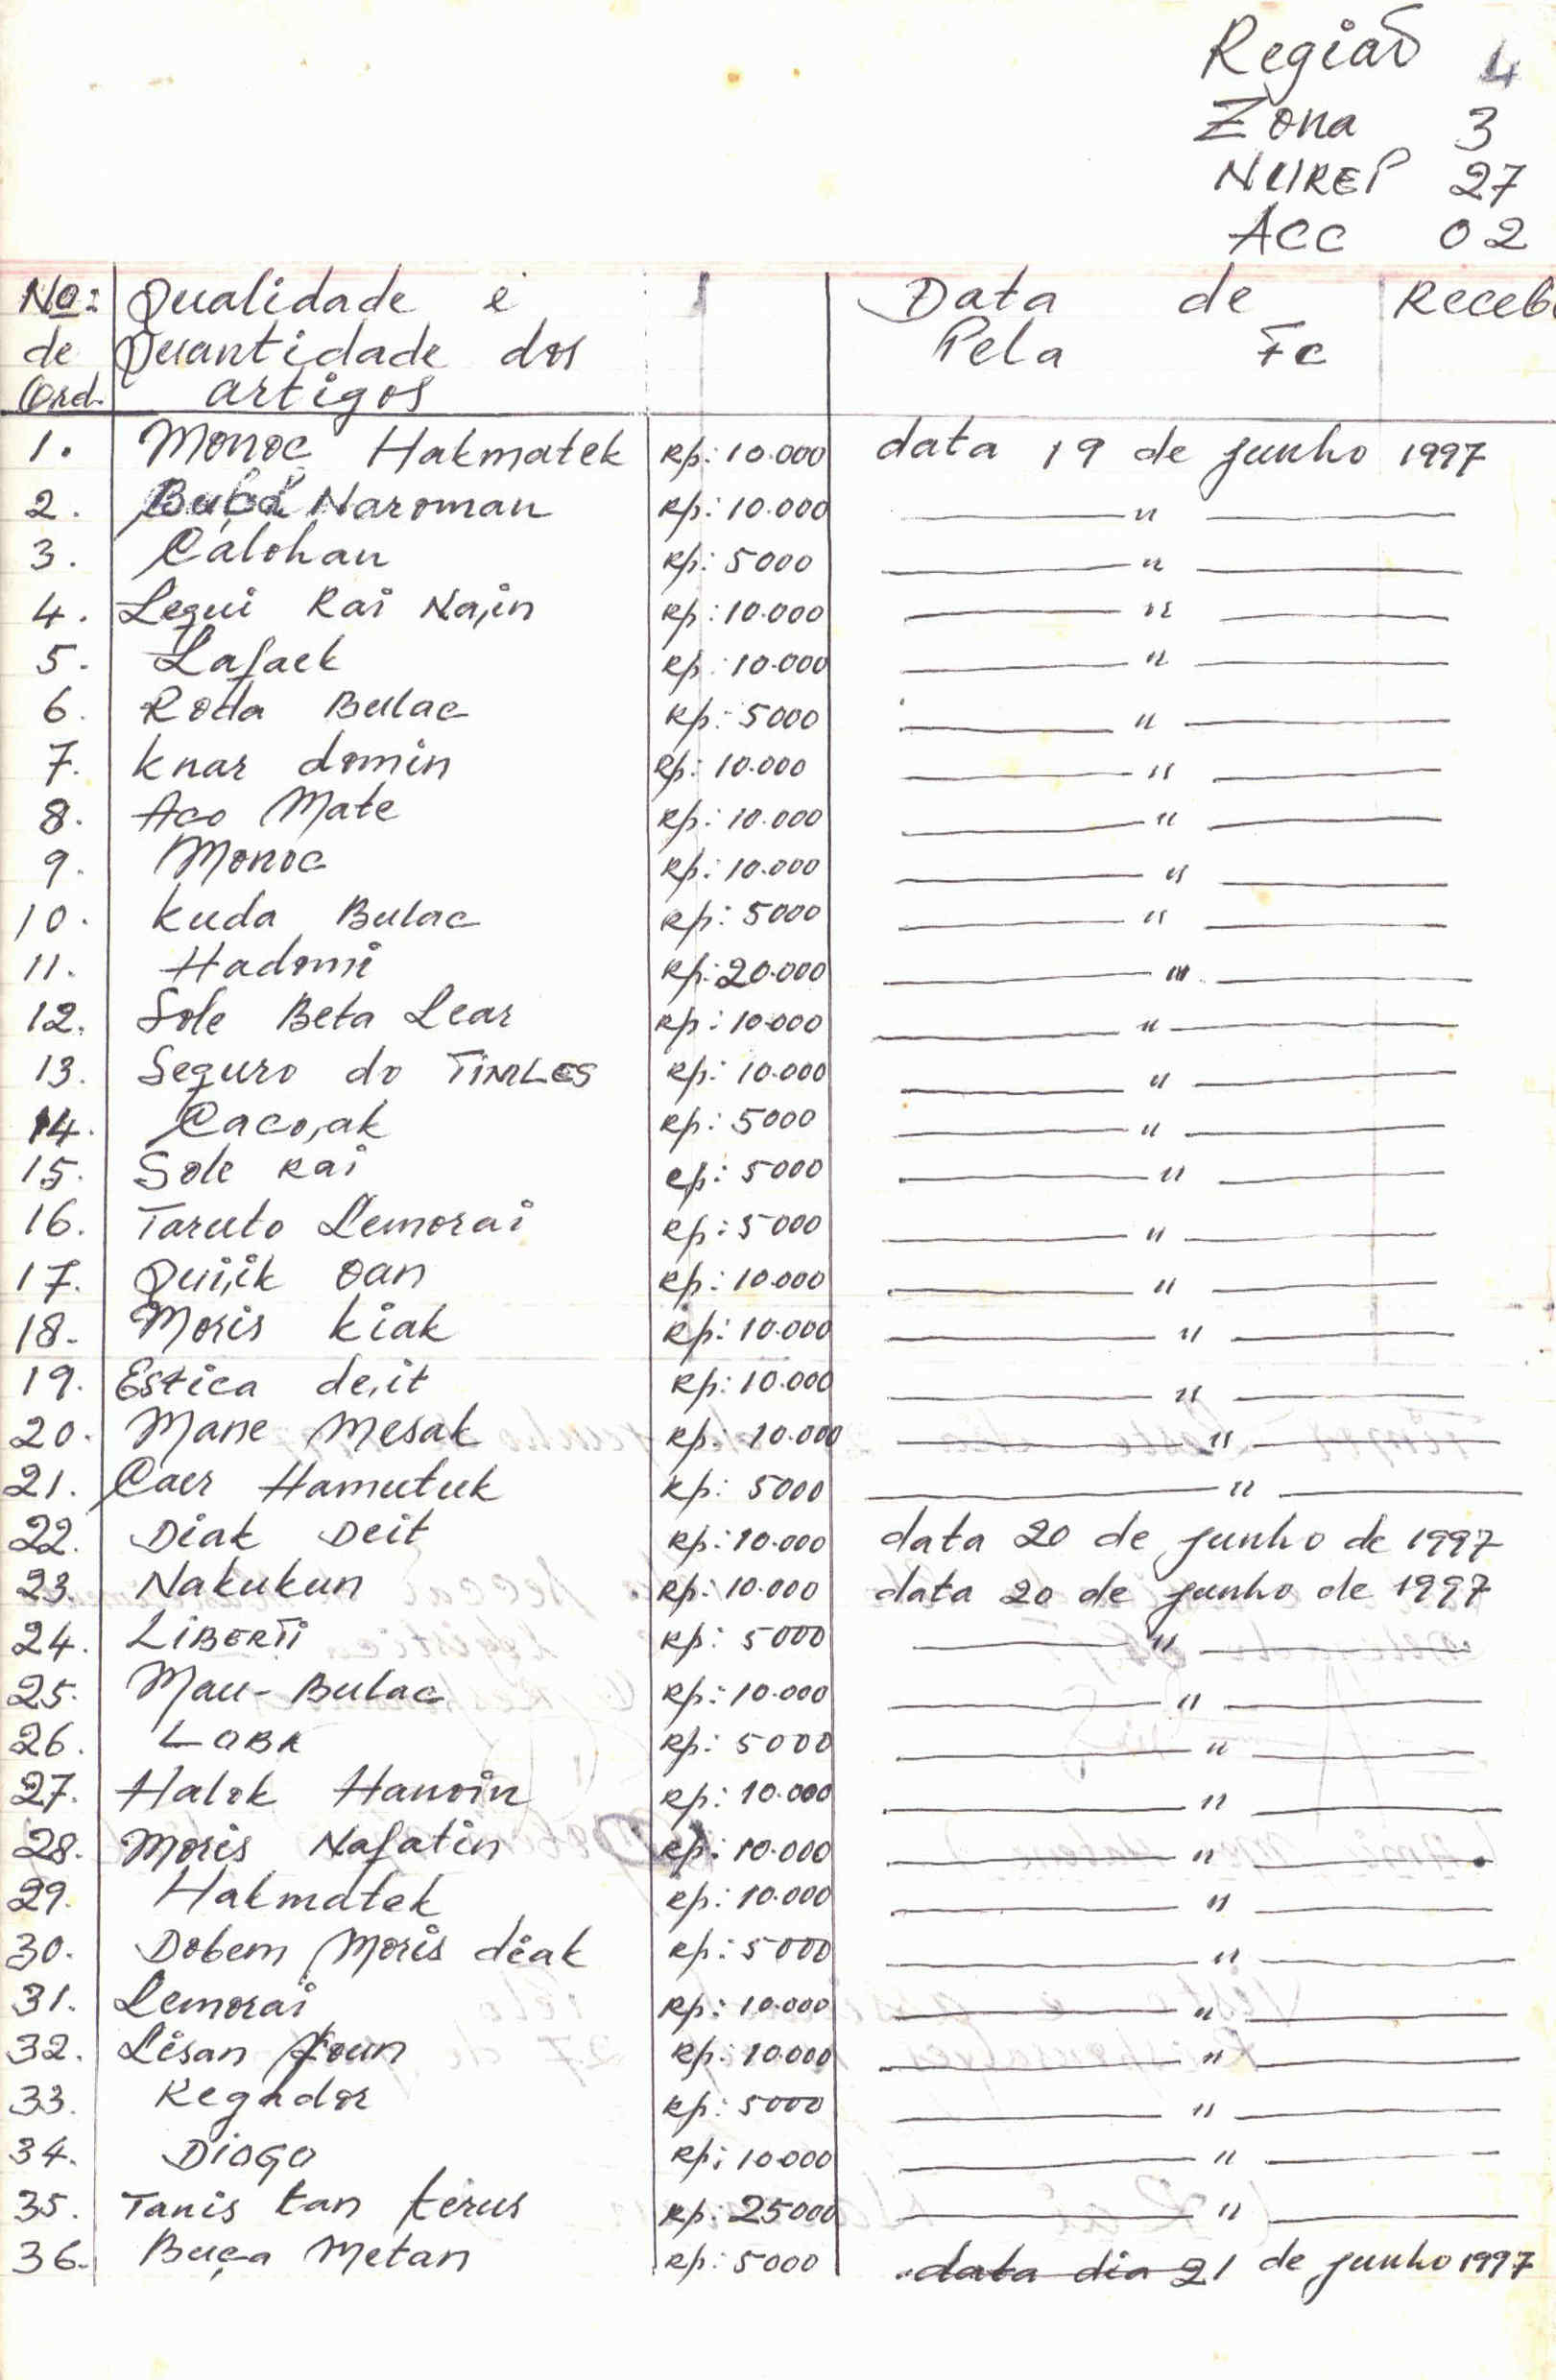 Região 4
Zona 3
NUREP 27
ACC 02
No: Qualidade e Data de Receb
de Quantidade dos Pela FC
Ord. artigos
1. Monoc Hakmatek Rp: 10.000 data 19 de junho 1997
2. Naroman Rp: 10.000 —— " ——
3. Calohan Rp: 5000 —— " ——
4. Lequi Rai Na,in Rp: 10.000 —— " ——
5. Lafaek Rp: 10.000 —— " ——
6. Roda Bulac Rp: 5000 —— " ——
7. Knar domin Rp: 10.000 —— " ——
8. Aco Mate Rp: 10.000 —— " ——
9. Monoc Rp: 10.000 —— " ——
10. Kuda Bulac Rp: 5000 —— " ——
11. Hadomi Rp: 20.000 —— " ——
12. Sole Beta Lear Rp: 10.000 —— " ——
13. Seguro do Rp: 10.000 —— " ——
14. Caco,ak Rp: 5000 —— " ——
15. Sole Rai Rp: 5000 —— " ——
16. Taruto Lemorai Rp: 5000 —— " ——
17. Qui,ik oan Rp: 10.000 —— " ——
18. Moris kiak Rp: 10.000 —— " ——
19. Estica de,it Rp: 10.000 —— " ——
20. Mane Mesak Rp: 10.000 —— " ——
21. Caer Hamutuk Rp: 5000 —— " ——
22. Diak Deit Rp: 10.000 data 20 de junho de 1997
23. Nakukun Rp: 10.000 data 20 de junho de 1997
24. LIBERTI Rp: 5000 —— " ——
25. Mau-Bulac Rp: 10.000 —— " ——
26. LOBA Rp: 5000 —— " ——
27. Halok Hanoin Rp: 10.000 —— " ——
28. Moris Nafatin Rp: 10.000 —— " ——
29. Hakmatek Rp: 10.000 —— " ——
30. Dobem Moris diak Rp: 5000 —— " ——
31. Lemorai Rp: 10.000 —— " ——
32. Lisan Foun Rp: 10.000 —— " ——
33. Regador Rp: 5000 —— " ——
34. DIOGO Rp: 10.000 —— " ——
35. Tanis tan terus Rp: 25000 —— " ——
36. Buça Metan Rp: 5000 data dia 21 de junho 1997